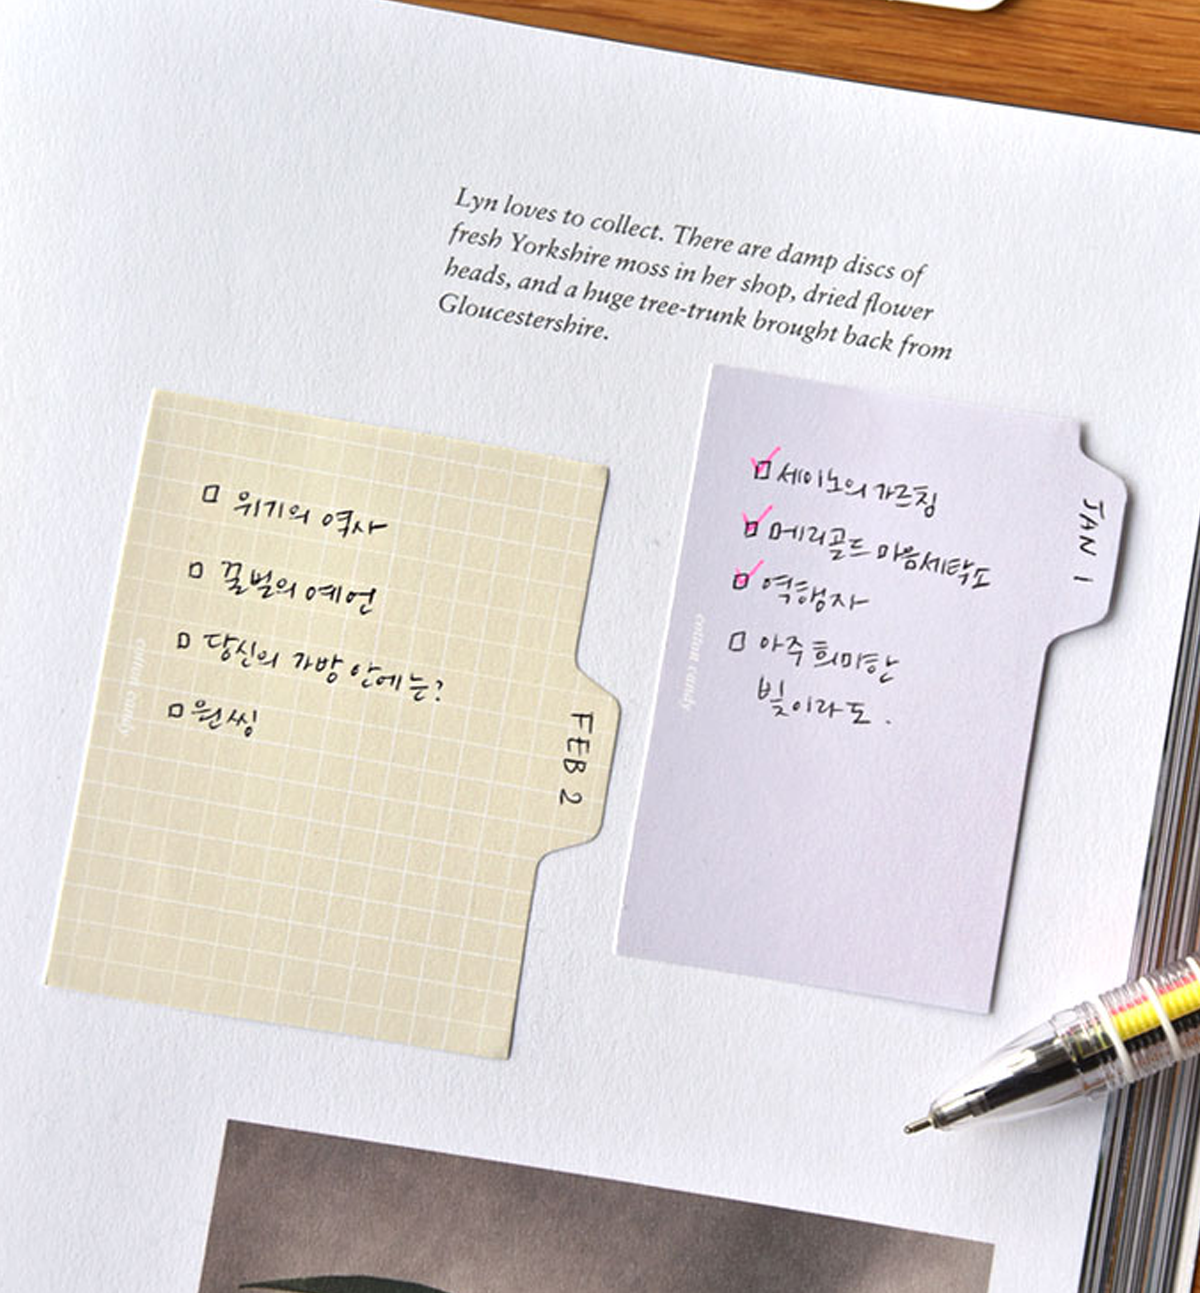 Lyn loves to collect. There are damp discs of
fresh Yorkshire moss in her shop, dried flower
heads, and a huge tree-trunk brought back from
Gloucestershire.
위기의 역사
꿀벌의 예언
당신의 가방 안에는?
원씽
FEB 2
cotton candy
세이노의 가르침
메리골드 마음세탁소
역행자
아주 희미한
빛이라도.
JAN 1
cotton candy